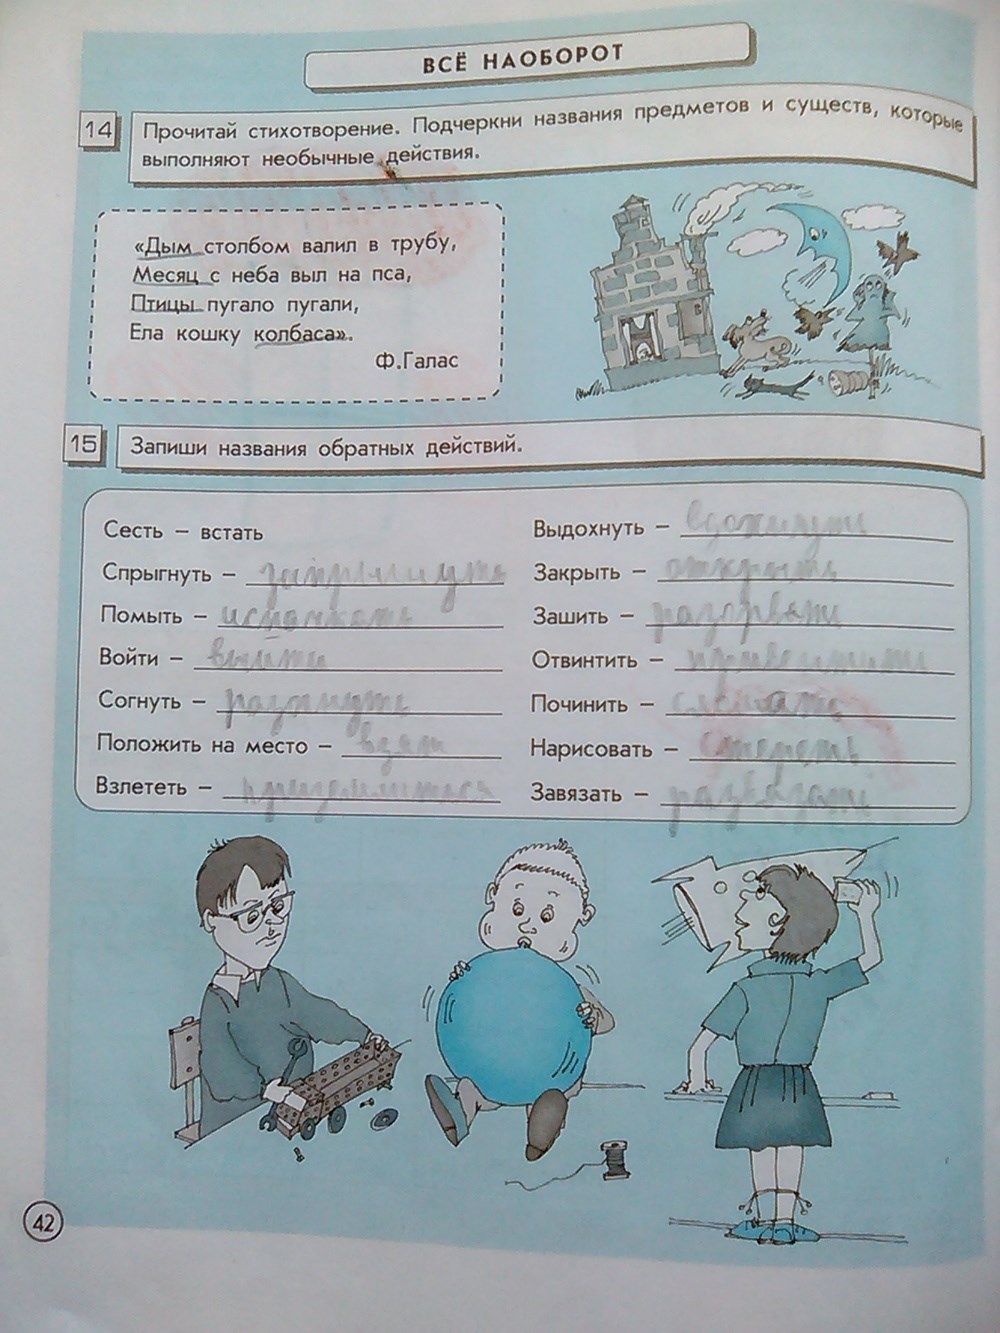 ВСЁ НАОБОРОТ
14 Прочитай стихотворение. Подчеркни названия предметов и существ, которые
выполняют необычные действия.
«Дым столбом валил в трубу,
Месяц с неба выл на пса,
Птицы пугало пугали,
Ела кошку колбаса».
Ф.Галас
15 Запиши названия обратных действий.
Сесть – встать
Спрыгнуть – запрыгнуть
Помыть – испачкать
Войти – выйти
Согнуть – разогнуть
Положить на место – взять
Взлететь – приземлиться
Выдохнуть – вдохнуть
Закрыть – открыть
Зашить – разорвать
Отвинтить –
Починить – сломать
Нарисовать – стереть
Завязать – развязать
42